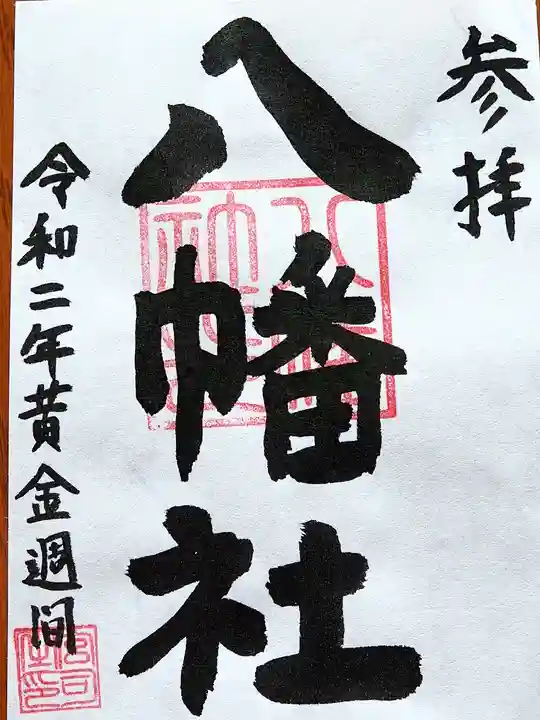 参拝
八幡社
令和二年黄金週间